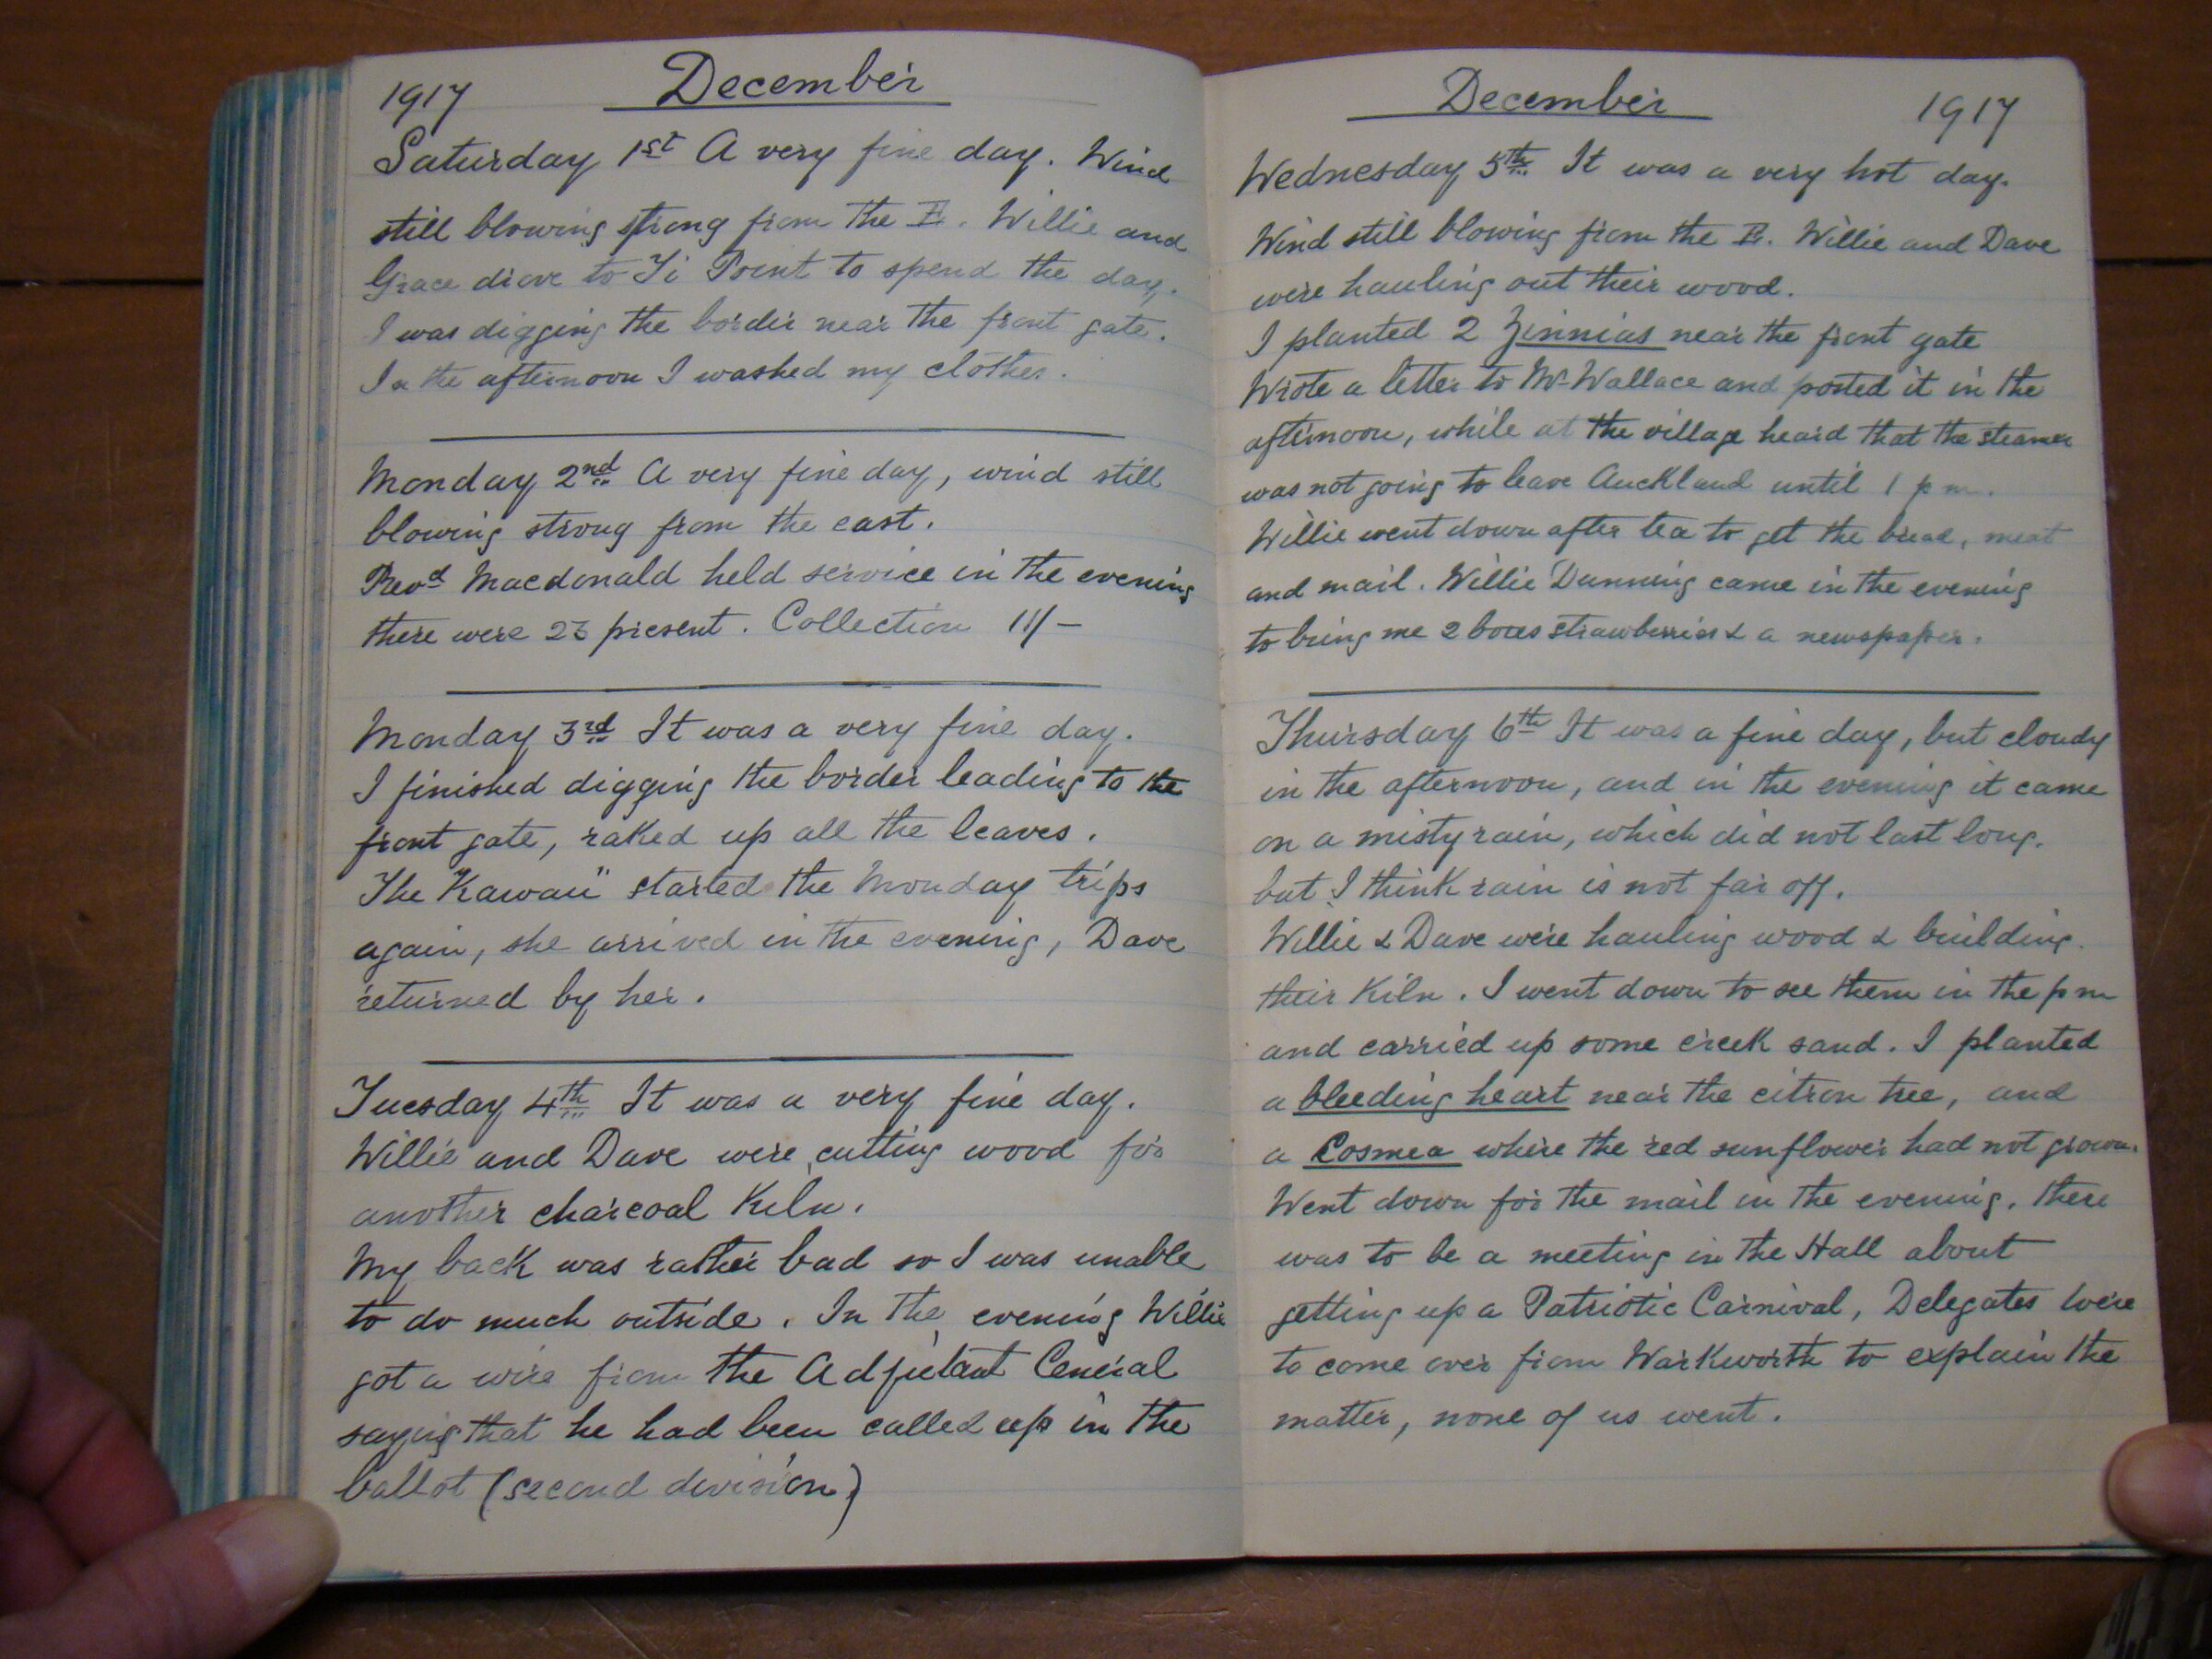 1917 December
Saturday 1st A very fine day. Wind
still blowing strong from the E. Willie and
Grace drove to Ti Point to spend the day.
I was digging the border near the front gate.
In the afternoon I washed my clothes.
Monday 2nd A very fine day, wind still
blowing strong from the east.
Revd Macdonald held service in the evening
there were 23 present. Collection 11/-
Monday 3rd It was a very fine day.
I finished digging the border leading to the
front gate, raked up all the leaves.
The "Kawau" started the Monday trips
again, she arrived in the evening, Dave
returned by her.
Tuesday 4th It was a very fine day.
Willie and Dave were cutting wood for
another charcoal Kiln.
My back was rather bad so I was unable
to do much outside. In the evening Willie
got a wire from the Adjutant General
saying that he had been called up in the
ballot (second division)
December 1917
Wednesday 5th It was a very hot day.
Wind still blowing from the E. Willie and Dave
were hauling out their wood.
I planted 2 Zinnias near the front gate
Wrote a letter to Mr Wallace and posted it in the
afternoon, while at the village heard that the steamer
was not going to leave Auckland until 1 pm.
Willie went down after tea to get the bread, meat
and mail. Willie Dunning came in the evening
to bring me 2 boxes strawberries & a newspaper.
Thursday 6th It was a fine day, but cloudy
in the afternoon, and in the evening it came
on a misty rain, which did not last long.
but I think rain is not far off.
Willie & Dave were hauling wood & building
their Kiln. I went down to see them in the pm
and carried up some creek sand. I planted
a bleeding heart near the citron tree, and
a Cosmea where the red sunflower had not grown.
Went down for the mail in the evening, there
was to be a meeting in the Hall about
getting up a Patriotic Carnival, Delegates were
to come over from Warkworth to explain the
matter, none of us went.